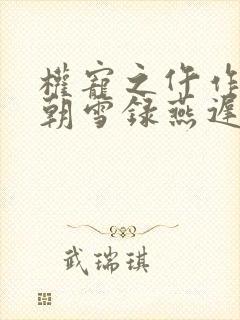 權寵之仵作
朝雪録燕遲
武瑞琪